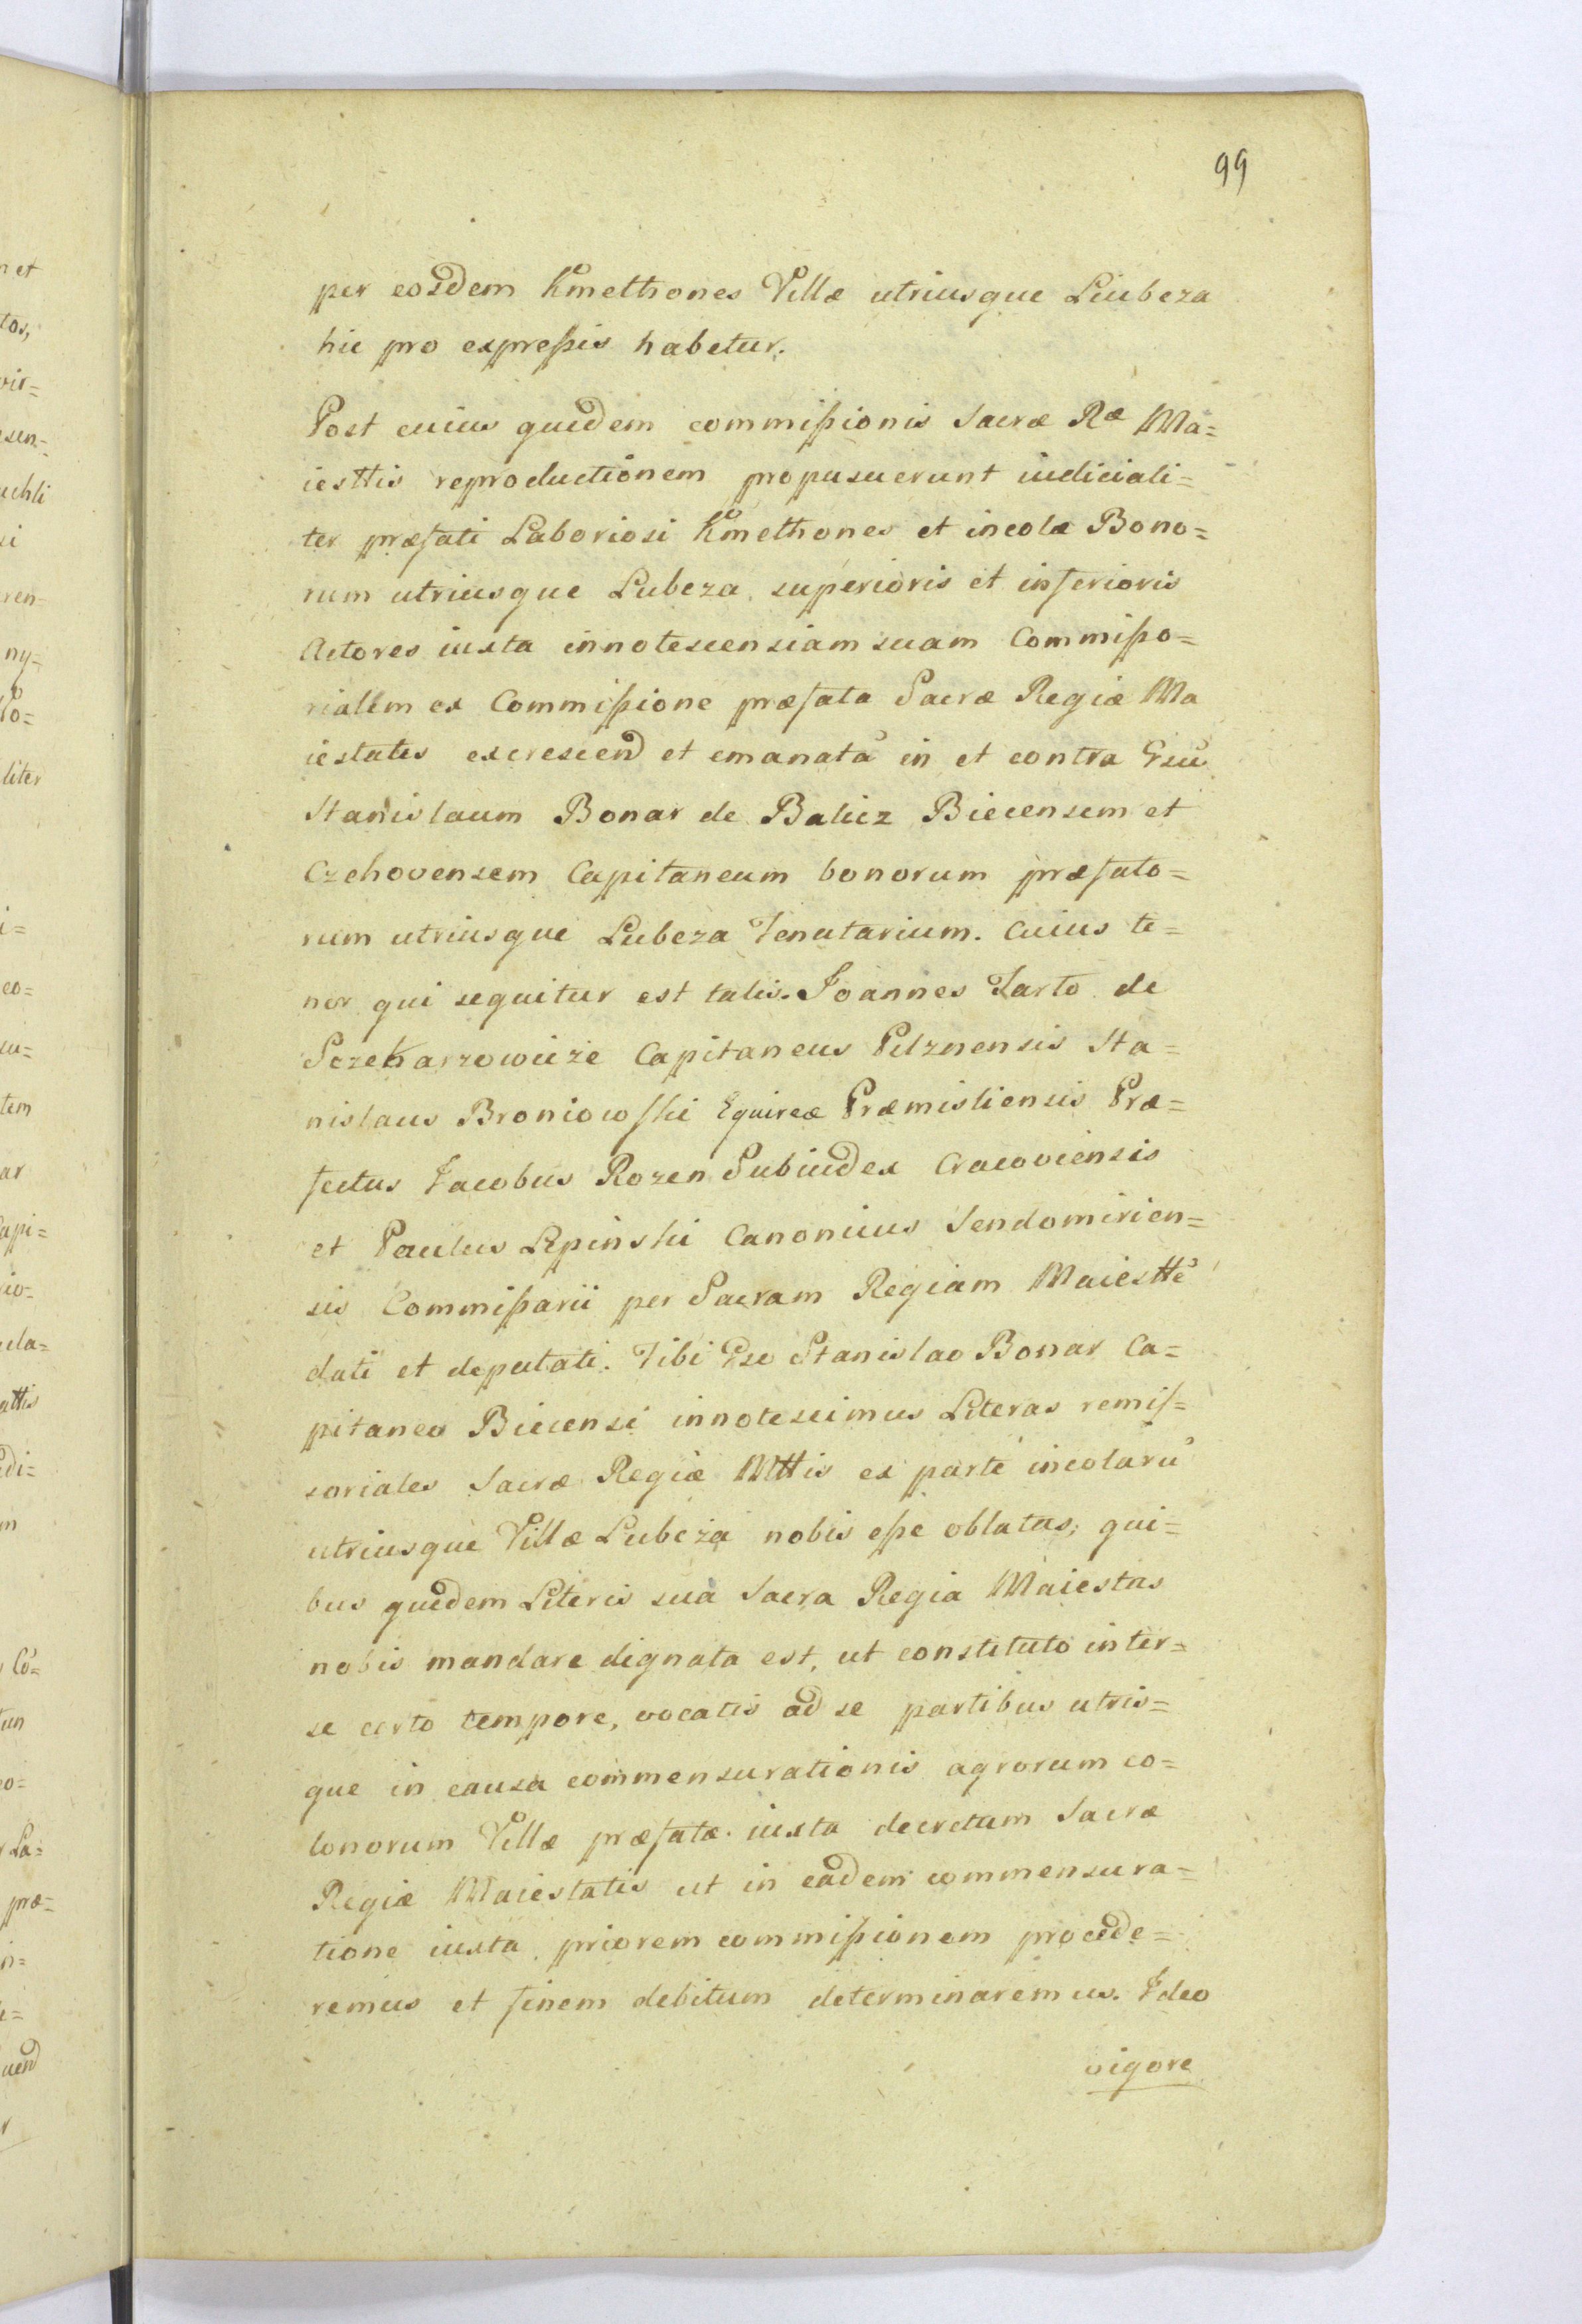 99
per eosdem Kmethones Villæ utriusque Liubcza
hic pro expreſsis habetur.
Post cuius quidem commiſsionis Sacræ Ræ Ma=
iesttis reproductionem proposuerunt iudiciali=
ter præfati Laboriosi Kmethones et incolæ Bono=
rum utriusque Lubcza superioris et inferioris
Actores iuxta innotescensiam suam Commiſso=
rialem ex Commiſsione præfata Sacræ Regiæ Ma
iestatis excrescend et emanata in et contra Grsu
Stanislaum Bonar de Balicz Biecensem et
Czchovensem Capitaneum bonorum præfato=
rum utriusque Lubcza Tenutarium. Cuius te=
nor qui sequitur est talis. Joannes Tarto de
Sczekarzowicze Capitaneus Pilznensis Sta=
nislaus Broniowski Equireæ Præmisliensis Præ=
fectus Jacobus Rozen Subiudex Cracoviensis
et Paulus Lipinski Canonicus Sendomirien=
sis Commiſsarii per Sacram Regiam Maiestte
dati et deputati. Tibi Gso Stanislao Bonar Ca=
pitaneo Biecensi innotescimus Literas remiſ=
soriales Sacræ Regiæ Mttis ex parte incolaru
utriusque Villæ Lubcza nobis eſse oblatas, qui=
bus quidem Literis sua Sacra Regia Maiestas
nobis mandare dignata est, ut constituto inter=
se certo tempore, vocatis ad se partibus utris=
que in causa commensurationis agrorum co=
lonorum Villæ præfatæ iuxta decretum Sacræ
Regiæ Maiestatis ut in eadem commensura=
tione iuxta priorem commiſsionem procede=
remus et finem debitum determinaremus. Ideo
vigore